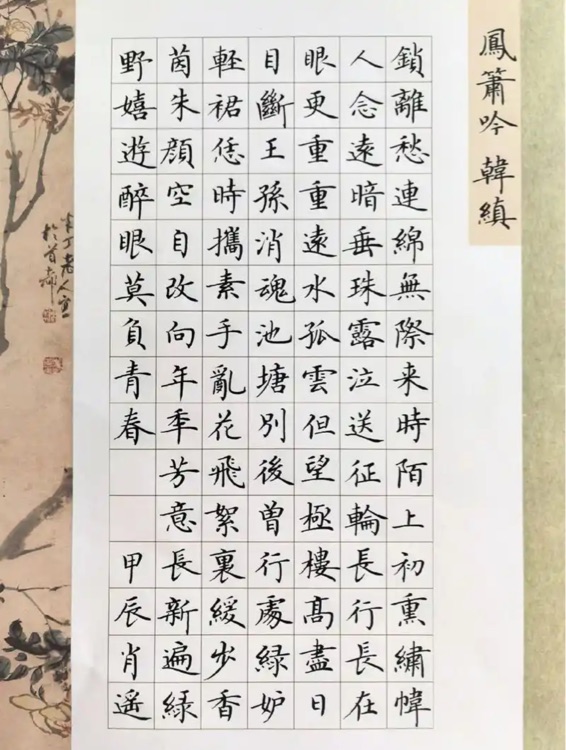 鳳簫吟 韓縝
鎖離愁連綿無際来時陌上初熏繡幃
人念遠暗垂珠露泣送征輪長行長在
眼更重重遠水孤雲但望極樓高盡日
目斷王孫消魂池塘別後曾行處緑妒
輕裙恁時攜素手亂花飛絮裏緩步香
茵朱顔空自改向年秊芳意長新遍緑
野嬉遊醉眼莫負青春 甲辰肖遥